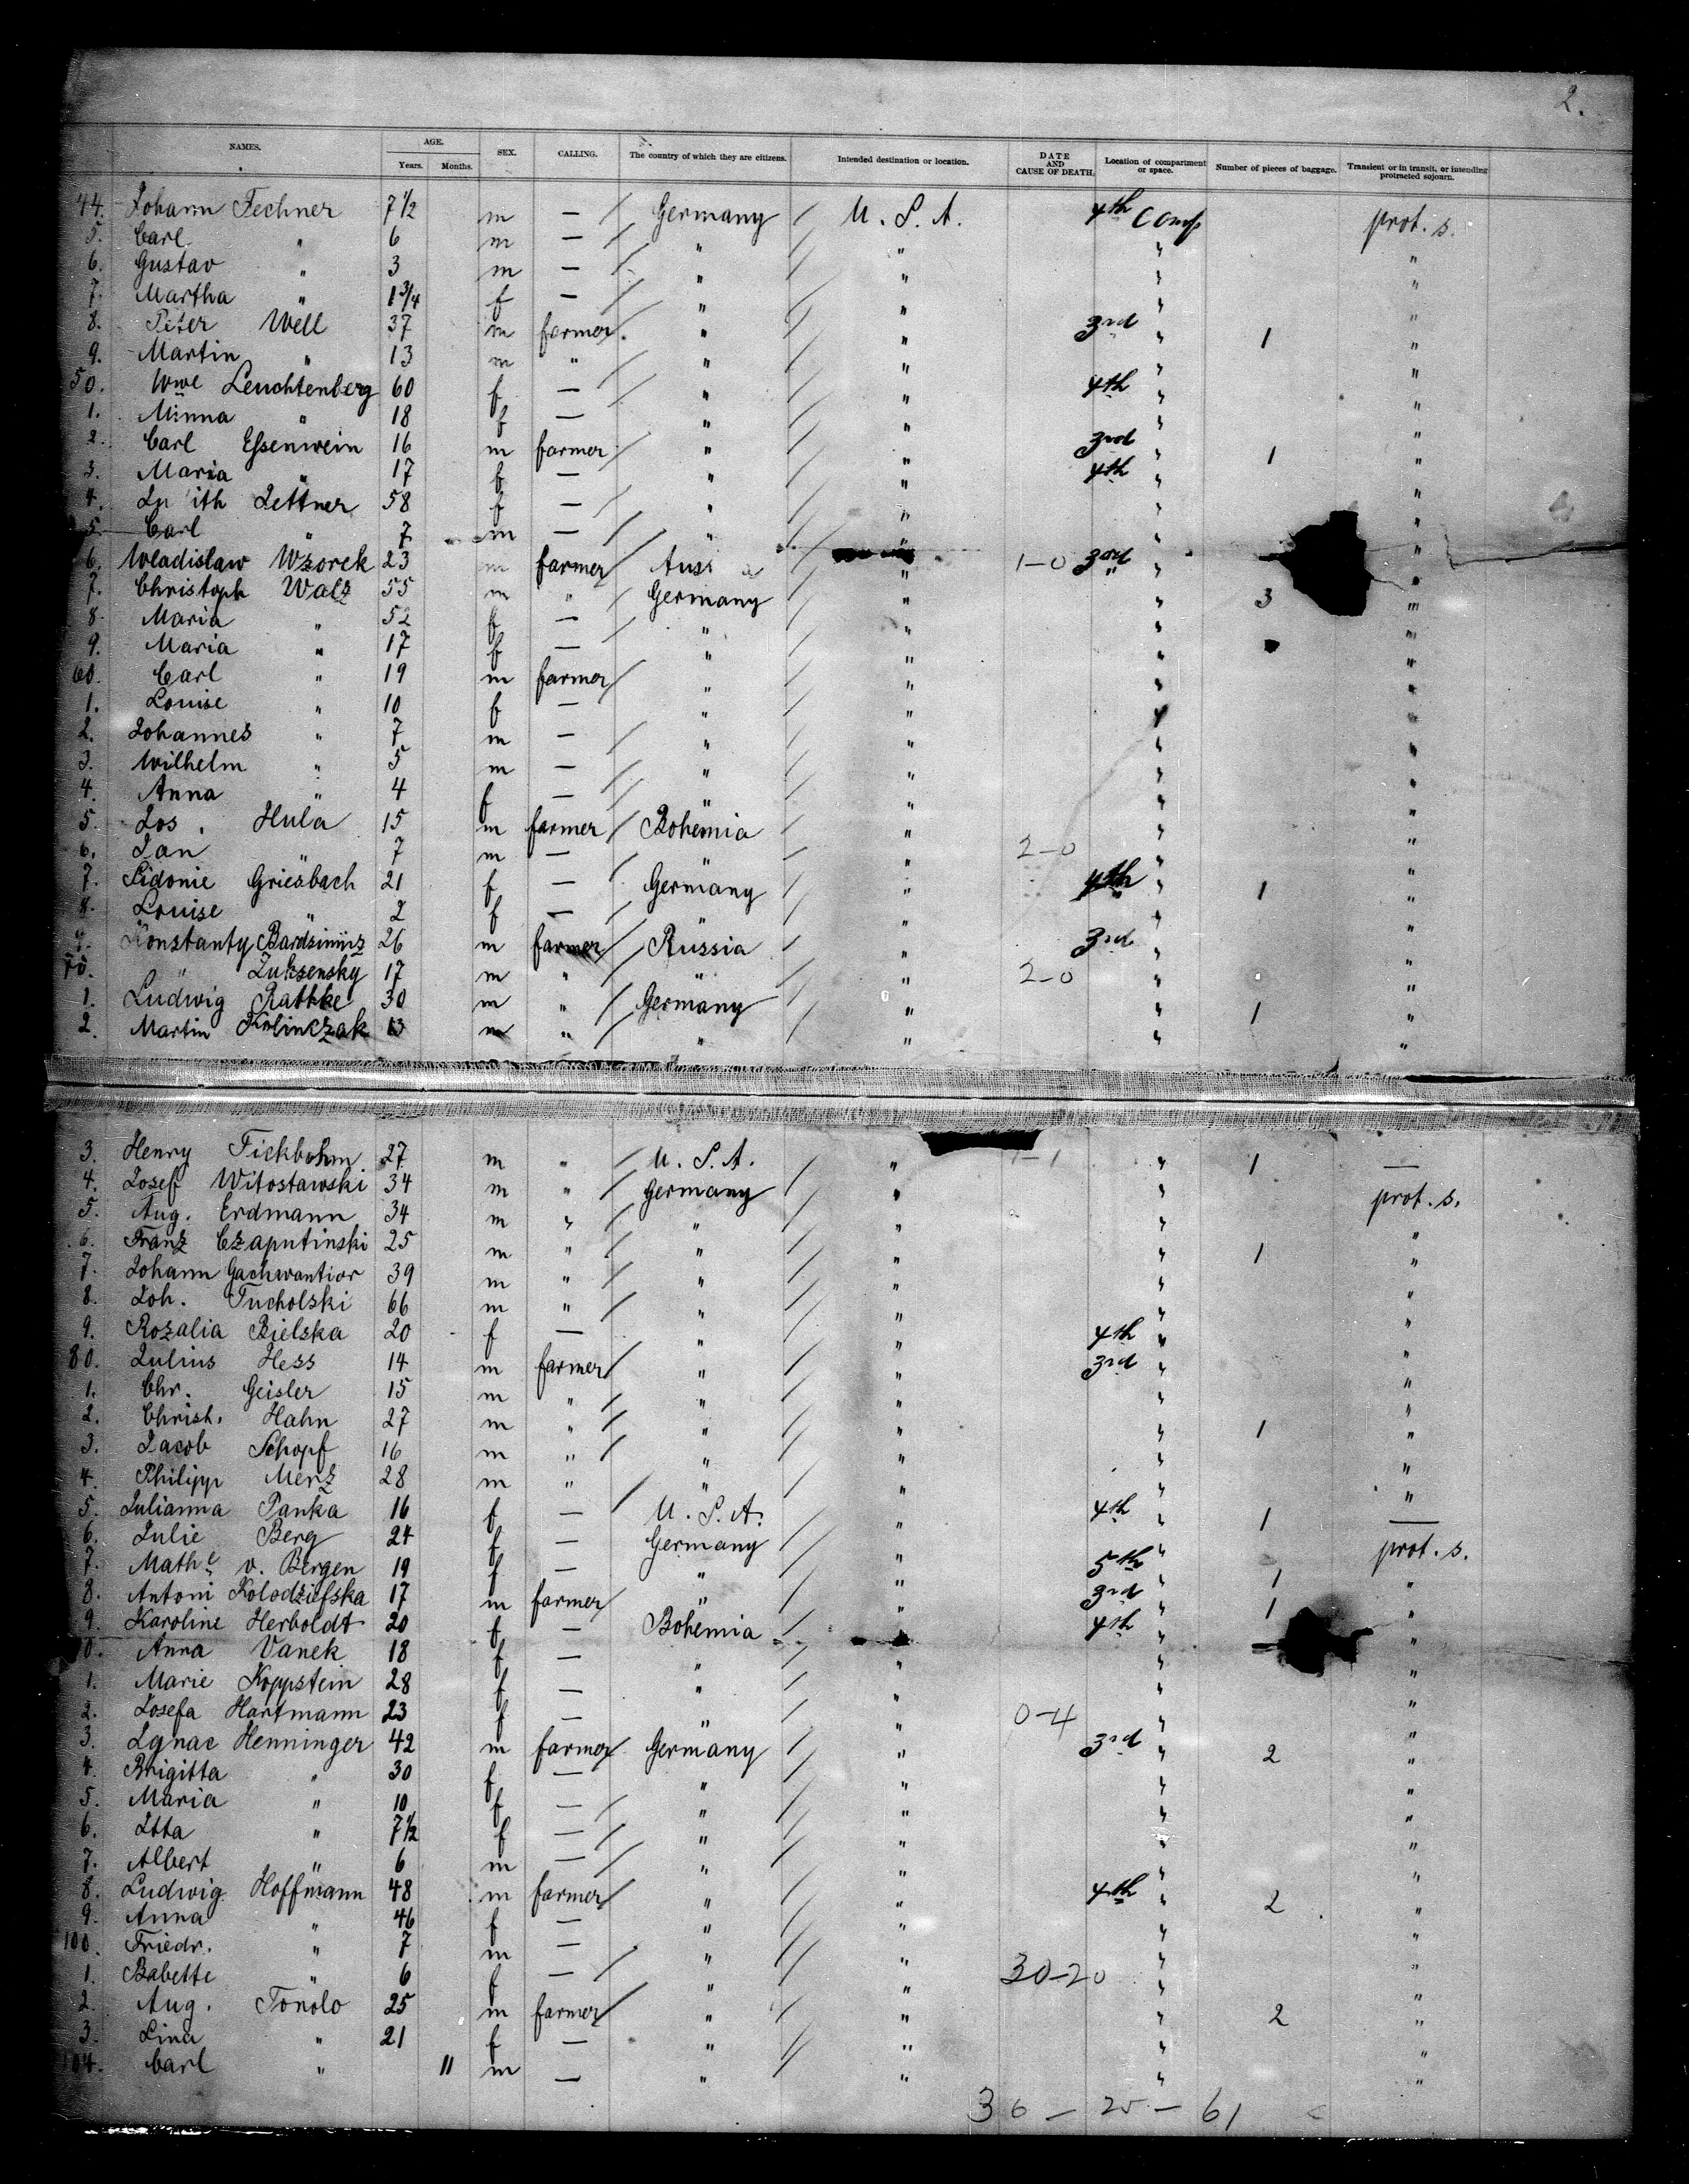 2.
NAMES. AGE. Years. Months. SEX. CALLING. The country of which they are citizens. Intended destination or location. DATE AND CAUSE OF DEATH. Location of compartment or space. Number of pieces of baggage. Transient or in transit, or intending protracted sojourn.
44. Johann Fechner 7 1/2 m — Germany U. S. A. 4th Comp prot. s.
5. Carl " 6 m — " " " "
6. Gustav " 3 m — " " " "
7. Martha " 1 3/4 f — " " " "
8. Peter Well 37 m farmer " " 3rd " 1 "
9. Martin " 13 m " " " " "
50. Wwe Leuchtenberg 60 f — " " 4th " "
1. Minna " 18 f — " " " "
2. Carl Essenwein 16 m farmer " " 3rd " 1 "
3. Maria " 17 f — " " 4th " "
4. Zettner 58 f — " " " "
5. Carl " 7 m — " " " "
6. Wladislaw Wzorek 23 m farmer " 1-0 3rd "
7. Christoph Walz 55 m " Germany " " 3 "
8. Maria " 52 f — " " " "
9. Maria " 17 f — " " " "
60. Carl " 19 m farmer " " " "
1. Louise " 10 f — " " " "
2. Johannes " 7 m — " " " "
3. Wilhelm " 5 m — " " " "
4. Anna " 4 f — " " " "
5. Jos. Hula 15 m farmer Bohemia " " "
6. Jan " 7 m — " " 2-0 " "
7. Sidonie Griesbach 21 f — Germany " 4th " 1 "
8. Louise " 2 f — " " " "
9. Konstanty 26 m farmer Russia " 3rd " "
70. " Zuksensky 17 m " " " 2-0 " "
1. Ludwig Rathke 30 m " Germany " " 1 "
2. Martin Kolinczak 13 m " " " " "
3. Henry Fickbohm 27 m " U. S. A. " 1-1 " 1 —
4. Josef Witostawski 34 m " Germany " " prot. s.
5. Aug. Erdmann 34 m " " " " "
6. Franz Czaputinski 25 m " " " " 1 "
7. Johann Gachwantior 39 m " " " " "
8. Joh. Tucholski 66 m " " " " "
9. Rozalia Bielska 20 f — " " 4th " "
80. Julius Hess 14 m farmer " " 3rd " "
1. Chr. Geisler 15 m " " " " "
2. Christ. Hahn 27 m " " " " 1 "
3. Jacob Schopf 16 m " " " " "
4. Philipp Merz 28 m " " " " "
5. Julianna Panka 16 f — U. S. A. " 4th " 1 —
6. Julie Berg 24 f — Germany " " prot. s.
7. Mathe v. Bergen 19 f — " " 5th " 1 "
8. Antoni Kolodziefska 17 m farmer " " 3rd " 1 "
9. Karoline Herboldt 20 f — Bohemia " 4th " "
90. Anna Vanek 18 f — " " " "
1. Marie Koppstein 28 f — " " " "
2. Josefa Hartmann 23 f — " " 0-4 " "
3. Ignac Henninger 42 m farmer Germany " 3rd " 2 "
4. Brigitta " 30 f — " " " "
5. Maria " 10 f — " " " "
6. Itta " 7 1/2 f — " " " "
7. Albert " 6 m — " " " "
8. Ludwig Hoffmann 48 m farmer " " 4th " 2 "
9. Anna " 46 f — " " " "
100. Friedr. " 7 m — " " " "
1. Babette " 6 f — " " 30-20 " "
2. Aug. Tonolo 25 m farmer " " " 2 "
3. Lina " 21 f — " " " "
104. Carl " 11 m — " " " "
36 — 25 — 61